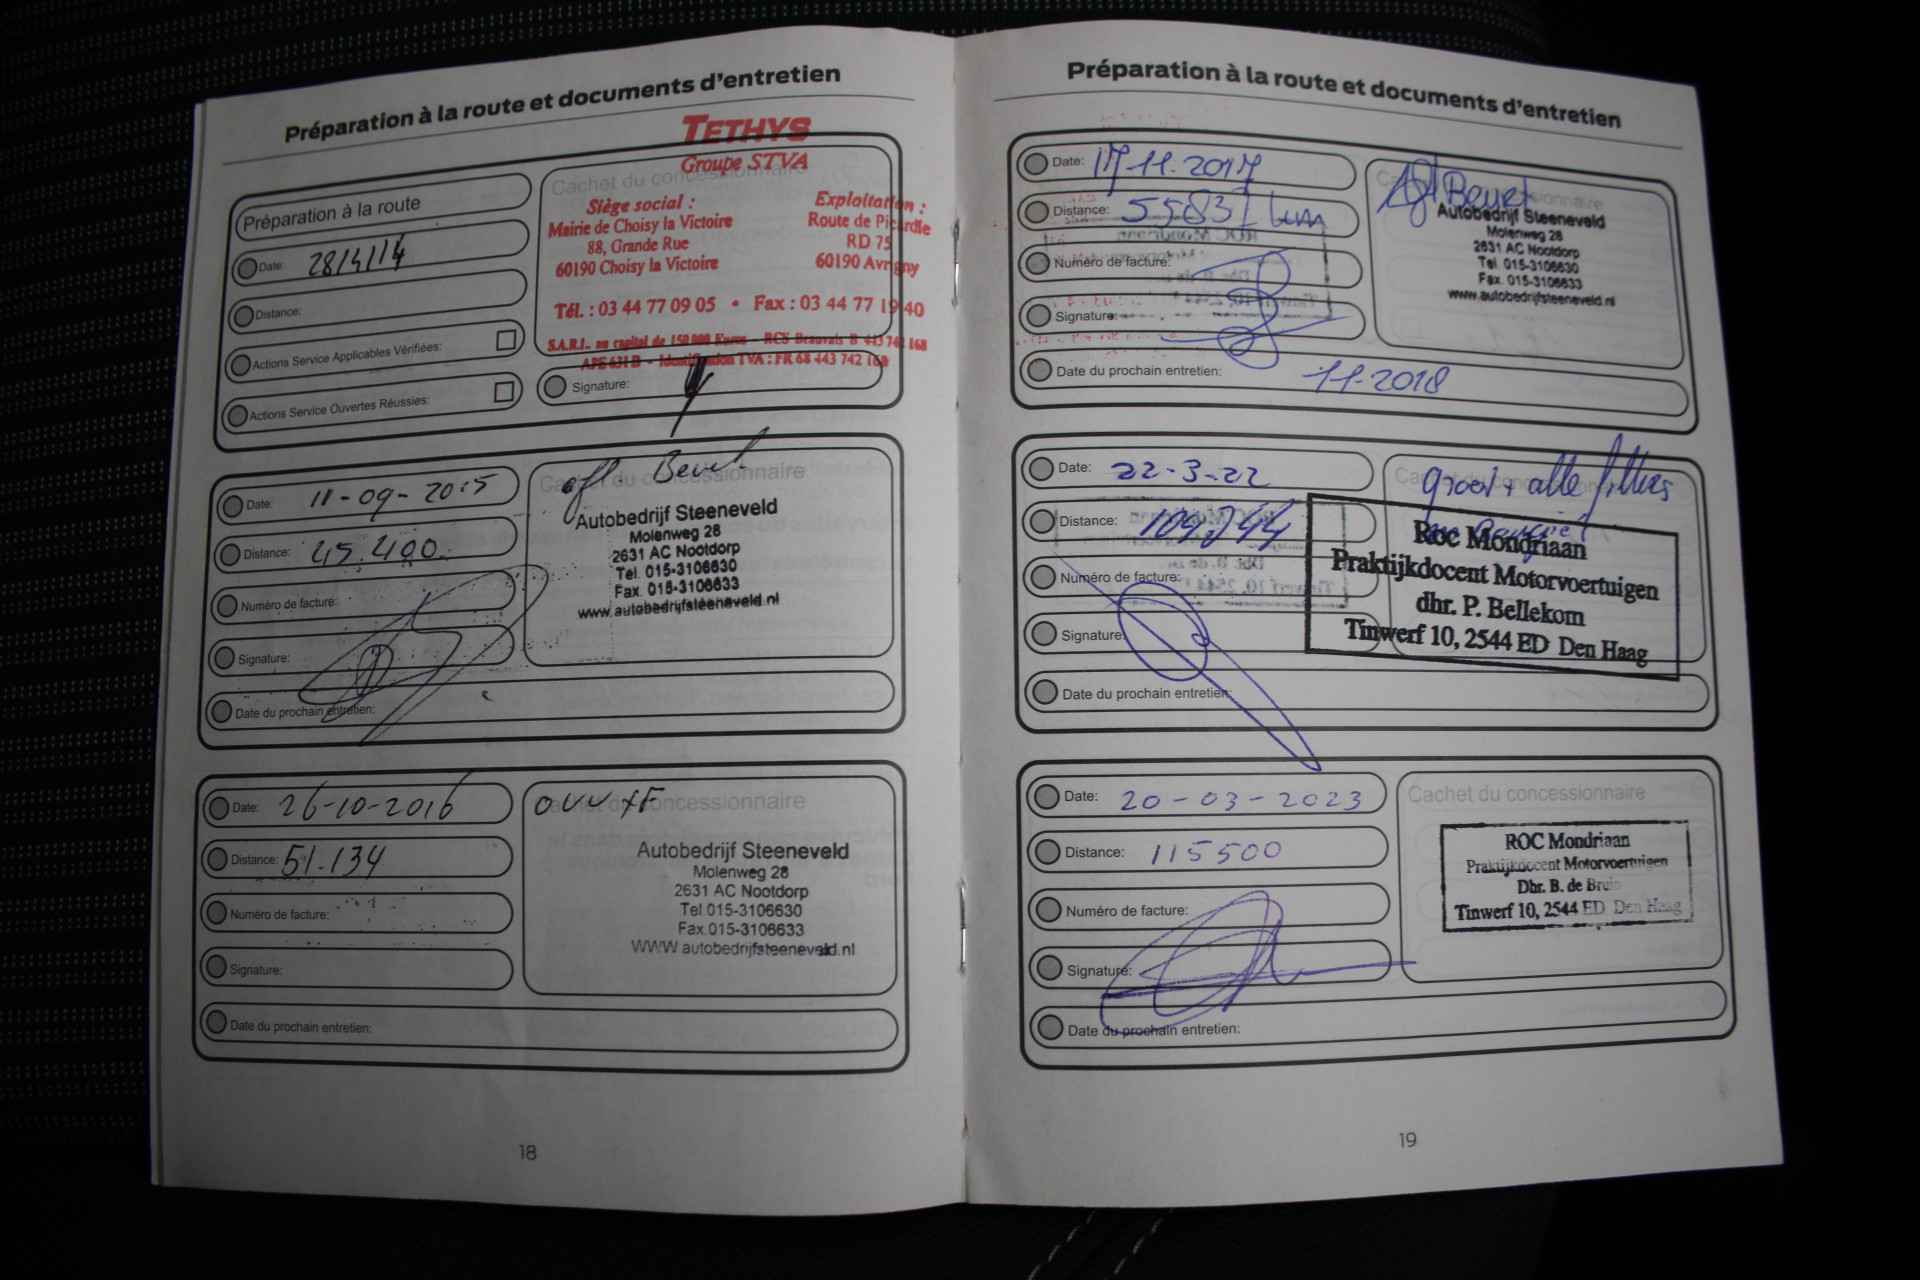 Préparation à la route et documents d'entretien
TETHYS
Groupe STVA
Cachet du concessionnaire
Siège social :
Mairie de Choisy la Victoire
88, Grande Rue
60190 Choisy la Victoire
Exploitation :
Route de Picardie
RD 75
60190 Avrigny
Tél. : 03 44 77 09 05 • Fax : 03 44 77 19 40
S.A.R.L. au capital de 150 000 Euros - RCS Beauvais B 443 742 168
APE 631 D - Identification TVA : FR 68 443 742 168
Préparation à la route
Date: 28/4/14
Distance:
Actions Service Applicables Vérifiées:
Actions Service Ouvertes Réussies:
Signature:
Date: 11-09-2015
Distance: 45.400
Numéro de facture:
Signature:
Date du prochain entretien:
Cachet du concessionnaire
Autobedrijf Steeneveld
Molenweg 28
2631 AC Nootdorp
Tel. 015-3106630
Fax. 015-3106633
www.autobedrijfsteeneveld.nl
Date: 26-10-2016
Distance: 51.134
Numéro de facture:
Signature:
Date du prochain entretien:
Cachet du concessionnaire
Autobedrijf Steeneveld
Molenweg 28
2631 AC Nootdorp
Tel 015-3106630
Fax.015-3106633
WWW.autobedrijfsteeneveld.nl
18
Préparation à la route et documents d'entretien
Date: 17-11-2017
Distance: 55831 km
Numéro de facture:
Signature:
Date du prochain entretien: 11-2018
Cachet du concessionnaire
Autobedrijf Steeneveld
Molenweg 28
2631 AC Nootdorp
Tel. 015-3106630
Fax. 015-3106633
www.autobedrijfsteeneveld.nl
Date: 22-3-22
Distance:
Numéro de facture:
Signature:
Date du prochain entretien:
Cachet du concessionnaire
groot + alle filters
Roc Mondriaan
Praktijkdocent Motorvoertuigen
dhr. P. Bellekom
Tinwerf 10, 2544 ED Den Haag
Date: 20-03-2023
Distance: 115500
Numéro de facture:
Signature:
Date du prochain entretien:
Cachet du concessionnaire
ROC Mondriaan
Praktijkdocent Motorvoertuigen
Dhr. B. de Bruin
Tinwerf 10, 2544 ED Den Haag
19